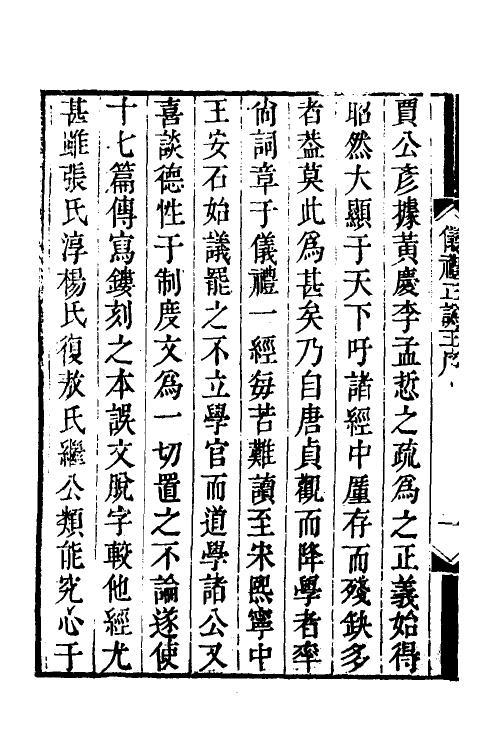 儀禮正譌王序
一
賈公彥據黃慶李孟悊之疏為之正義始得
昭然大顯于天下吁諸經中厪存而殘缺多
者葢莫此為甚矣乃自唐貞觀而降學者率
尙詞章于儀禮一經每苦難讀至宋熙寧中
王安石始議罷之不立學官而道學諸公又
喜談德性于制度文為一切置之不論遂使
十七篇傳寫鏤刻之本誤文脫字較他經尤
甚雖張氏淳楊氏復敖氏繼公類能究心于